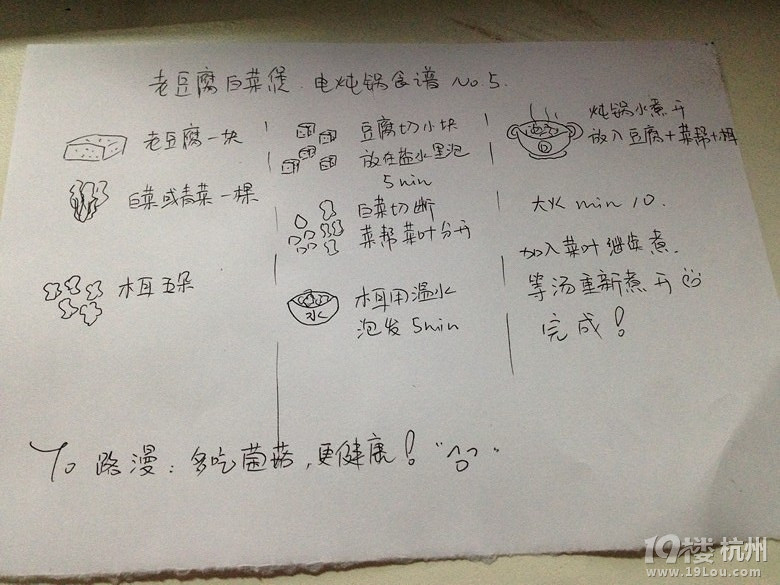 老豆腐白菜煲 电炖锅食谱 No.5.
老豆腐一块
白菜或青菜一棵
木耳五朵
豆腐切小块
放在盐水里泡
5min
白菜切断
菜帮菜叶分开
水
木耳用温水
泡发5min
炖锅水煮开
放入豆腐+菜帮+木耳
大火 min 10.
加入菜叶继续煮.
等汤重新煮开
完成!
To 路漫: 多吃菌菇,更健康!
19楼杭州
www.19Lou.com